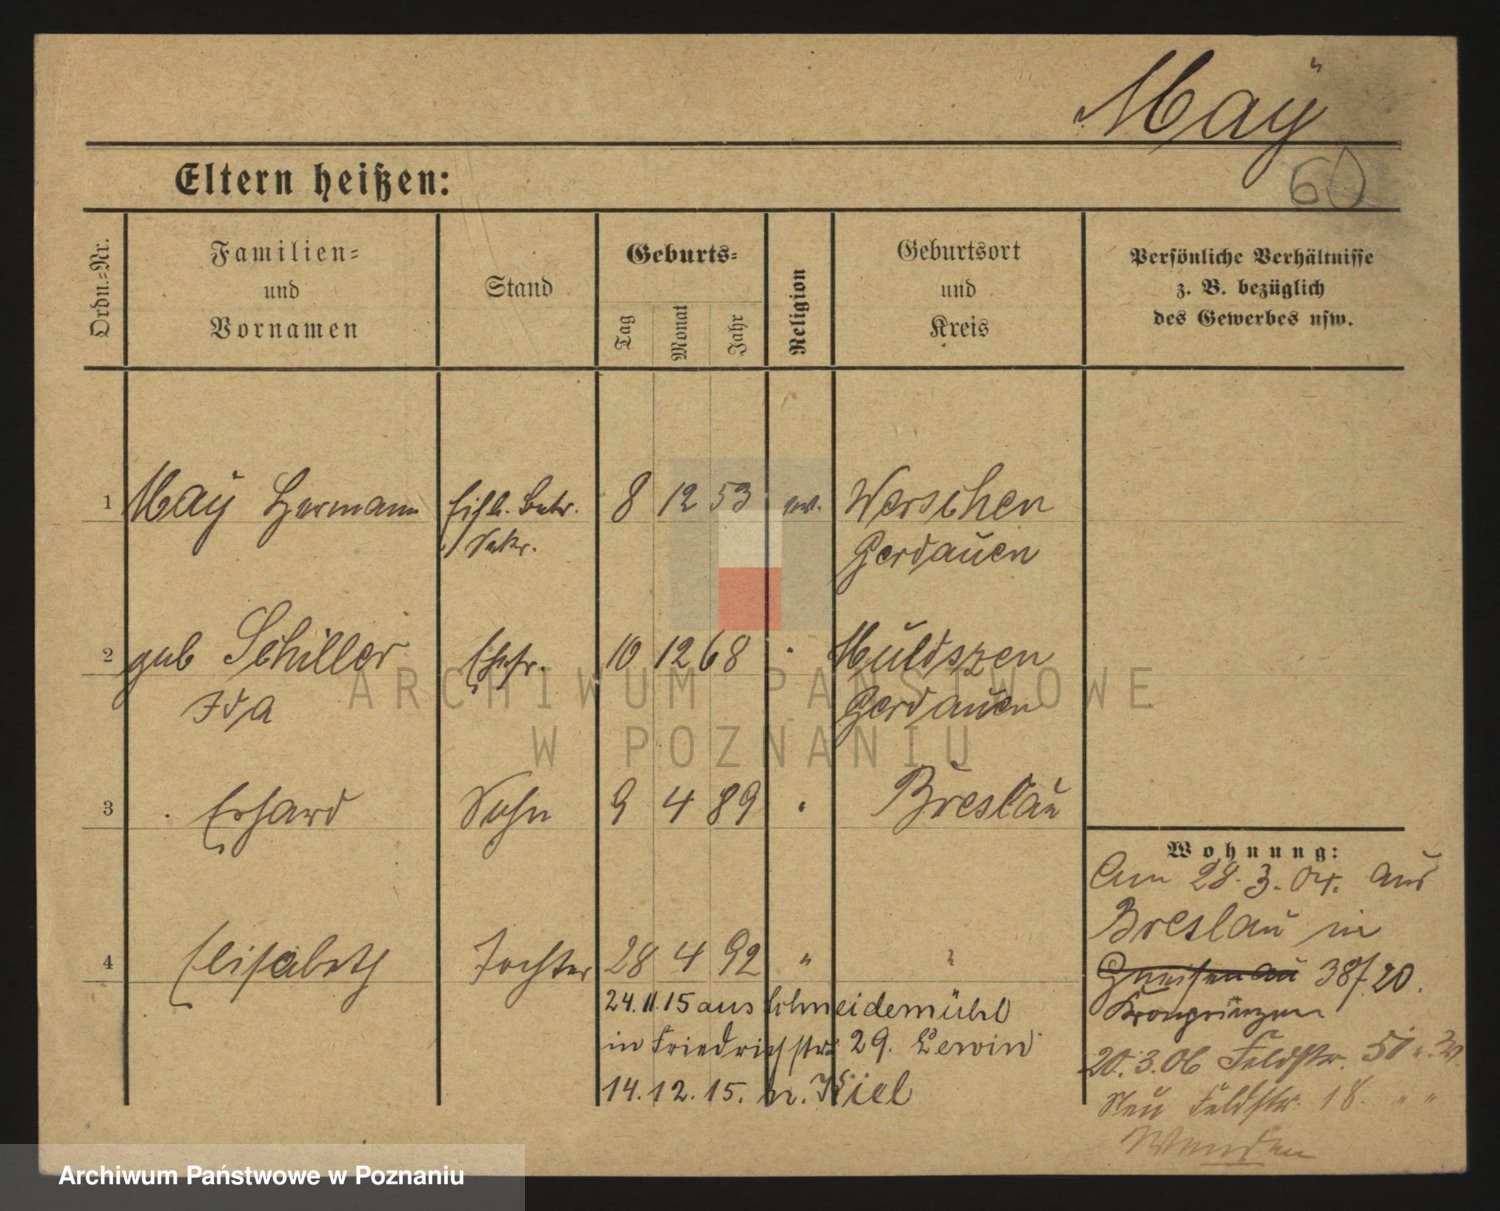 Maÿ
60
Eltern heißen:
Ordn.-Nr.
Familien- und Vornamen
Stand
Geburts-
Tag
Monat
Jahr
Religion
Geburtsort und Kreis
Persönliche Verhältnisse z. B. bezüglich des Gewerbes usw.
1 Maÿ Hermann Eisb. Betr. 8 12 53 ev. Werschen
Sekr. Gerdauen
2 geb Schiller Ehefr. 10 12 68 " Muldszen
Ida Gerdauen
3 Erhard Sohn 9 4 89 " Breslau
4 Elisabeth Tochter 28 4 92 " "
24.11.15 aus Schneidemühl
in Friedrichstr 29. Lewin
14.12.15. n. Kiel
Wohnung:
Am 28.3.04. aus
Breslau in
Gneisenau 38/20.
Kronprinzen
20.3.06 Feldstr. 51
Neu Feldstr. 18. " "
Wenden
ARCHIWUM PAŃSTWOWE
W POZNANIU
Archiwum Państwowe w Poznaniu